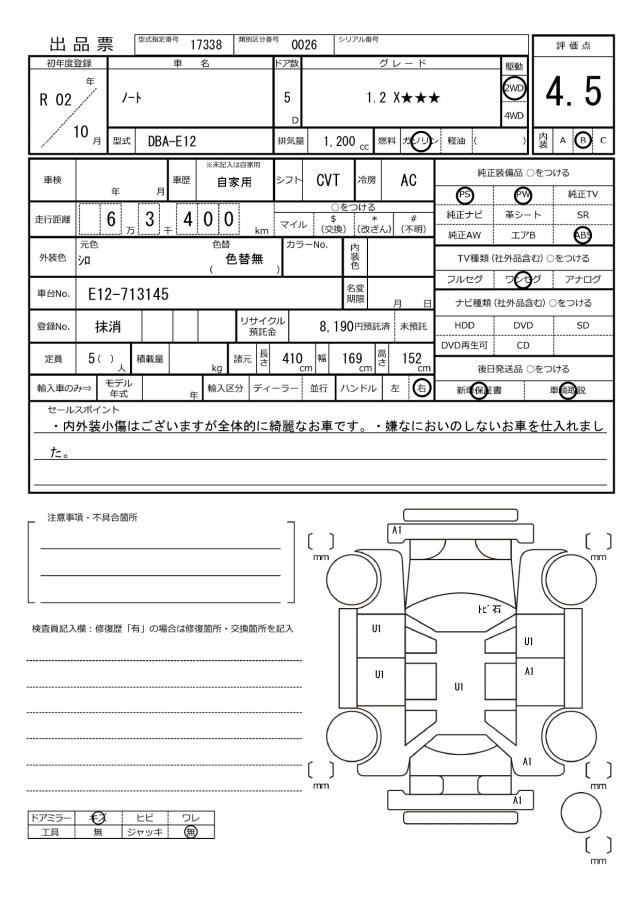 出品票 型式指定番号 17338 類別区分番号 0026 シリアル番号
評価点
4.5
内装 A B C
初年度登録 車名 ドア数 グレード 駆動
R 02 年 ノート 5 D 1.2 X★★★ 2WD
10 月 4WD
型式 DBA-E12 排気量 1,200 cc 燃料 ガソリン 軽油 ( )
車検 年 月 車歴 ※未記入は自家用 自家用 シフト CVT 冷房 AC
走行距離 6 万 3 千 4 0 0 km ○をつける
マイル $ (交換) * (改ざん) # (不明)
外装色 元色 シロ 色替 ( 色替無 ) カラーNo. 内装色
車台No. E12-713145 名変期限 月 日
登録No. 抹消 リサイクル預託金 8,190円預託済 未預託
定員 5( ) 人 積載量 kg 諸元 長さ 410 cm 幅 169 cm 高さ 152 cm
輸入車のみ⇒ モデル年式 年 輸入区分 ディーラー 並行 ハンドル 左 右
純正装備品 ○をつける
PS PW 純正TV
純正ナビ 革シート SR
純正AW エアB ABS
TV種類 (社外品含む) ○をつける
フルセグ ワンセグ アナログ
ナビ種類 (社外品含む) ○をつける
HDD DVD SD
DVD再生可 CD
後日発送品 ○をつける
新車保証書 車輌取説
セールスポイント
・内外装小傷はございますが全体的に綺麗なお車です。・嫌なにおいのしないお車を仕入れまし
た。
注意事項・不具合箇所
検査員記入欄：修復歴「有」の場合は修復箇所・交換箇所を記入
ドアミラー キズ ヒビ ワレ
工具 無 ジャッキ 無
A1
mm
mm
トビ石
U1
U1
U1
A1
U1
A1
mm
mm
A1
mm